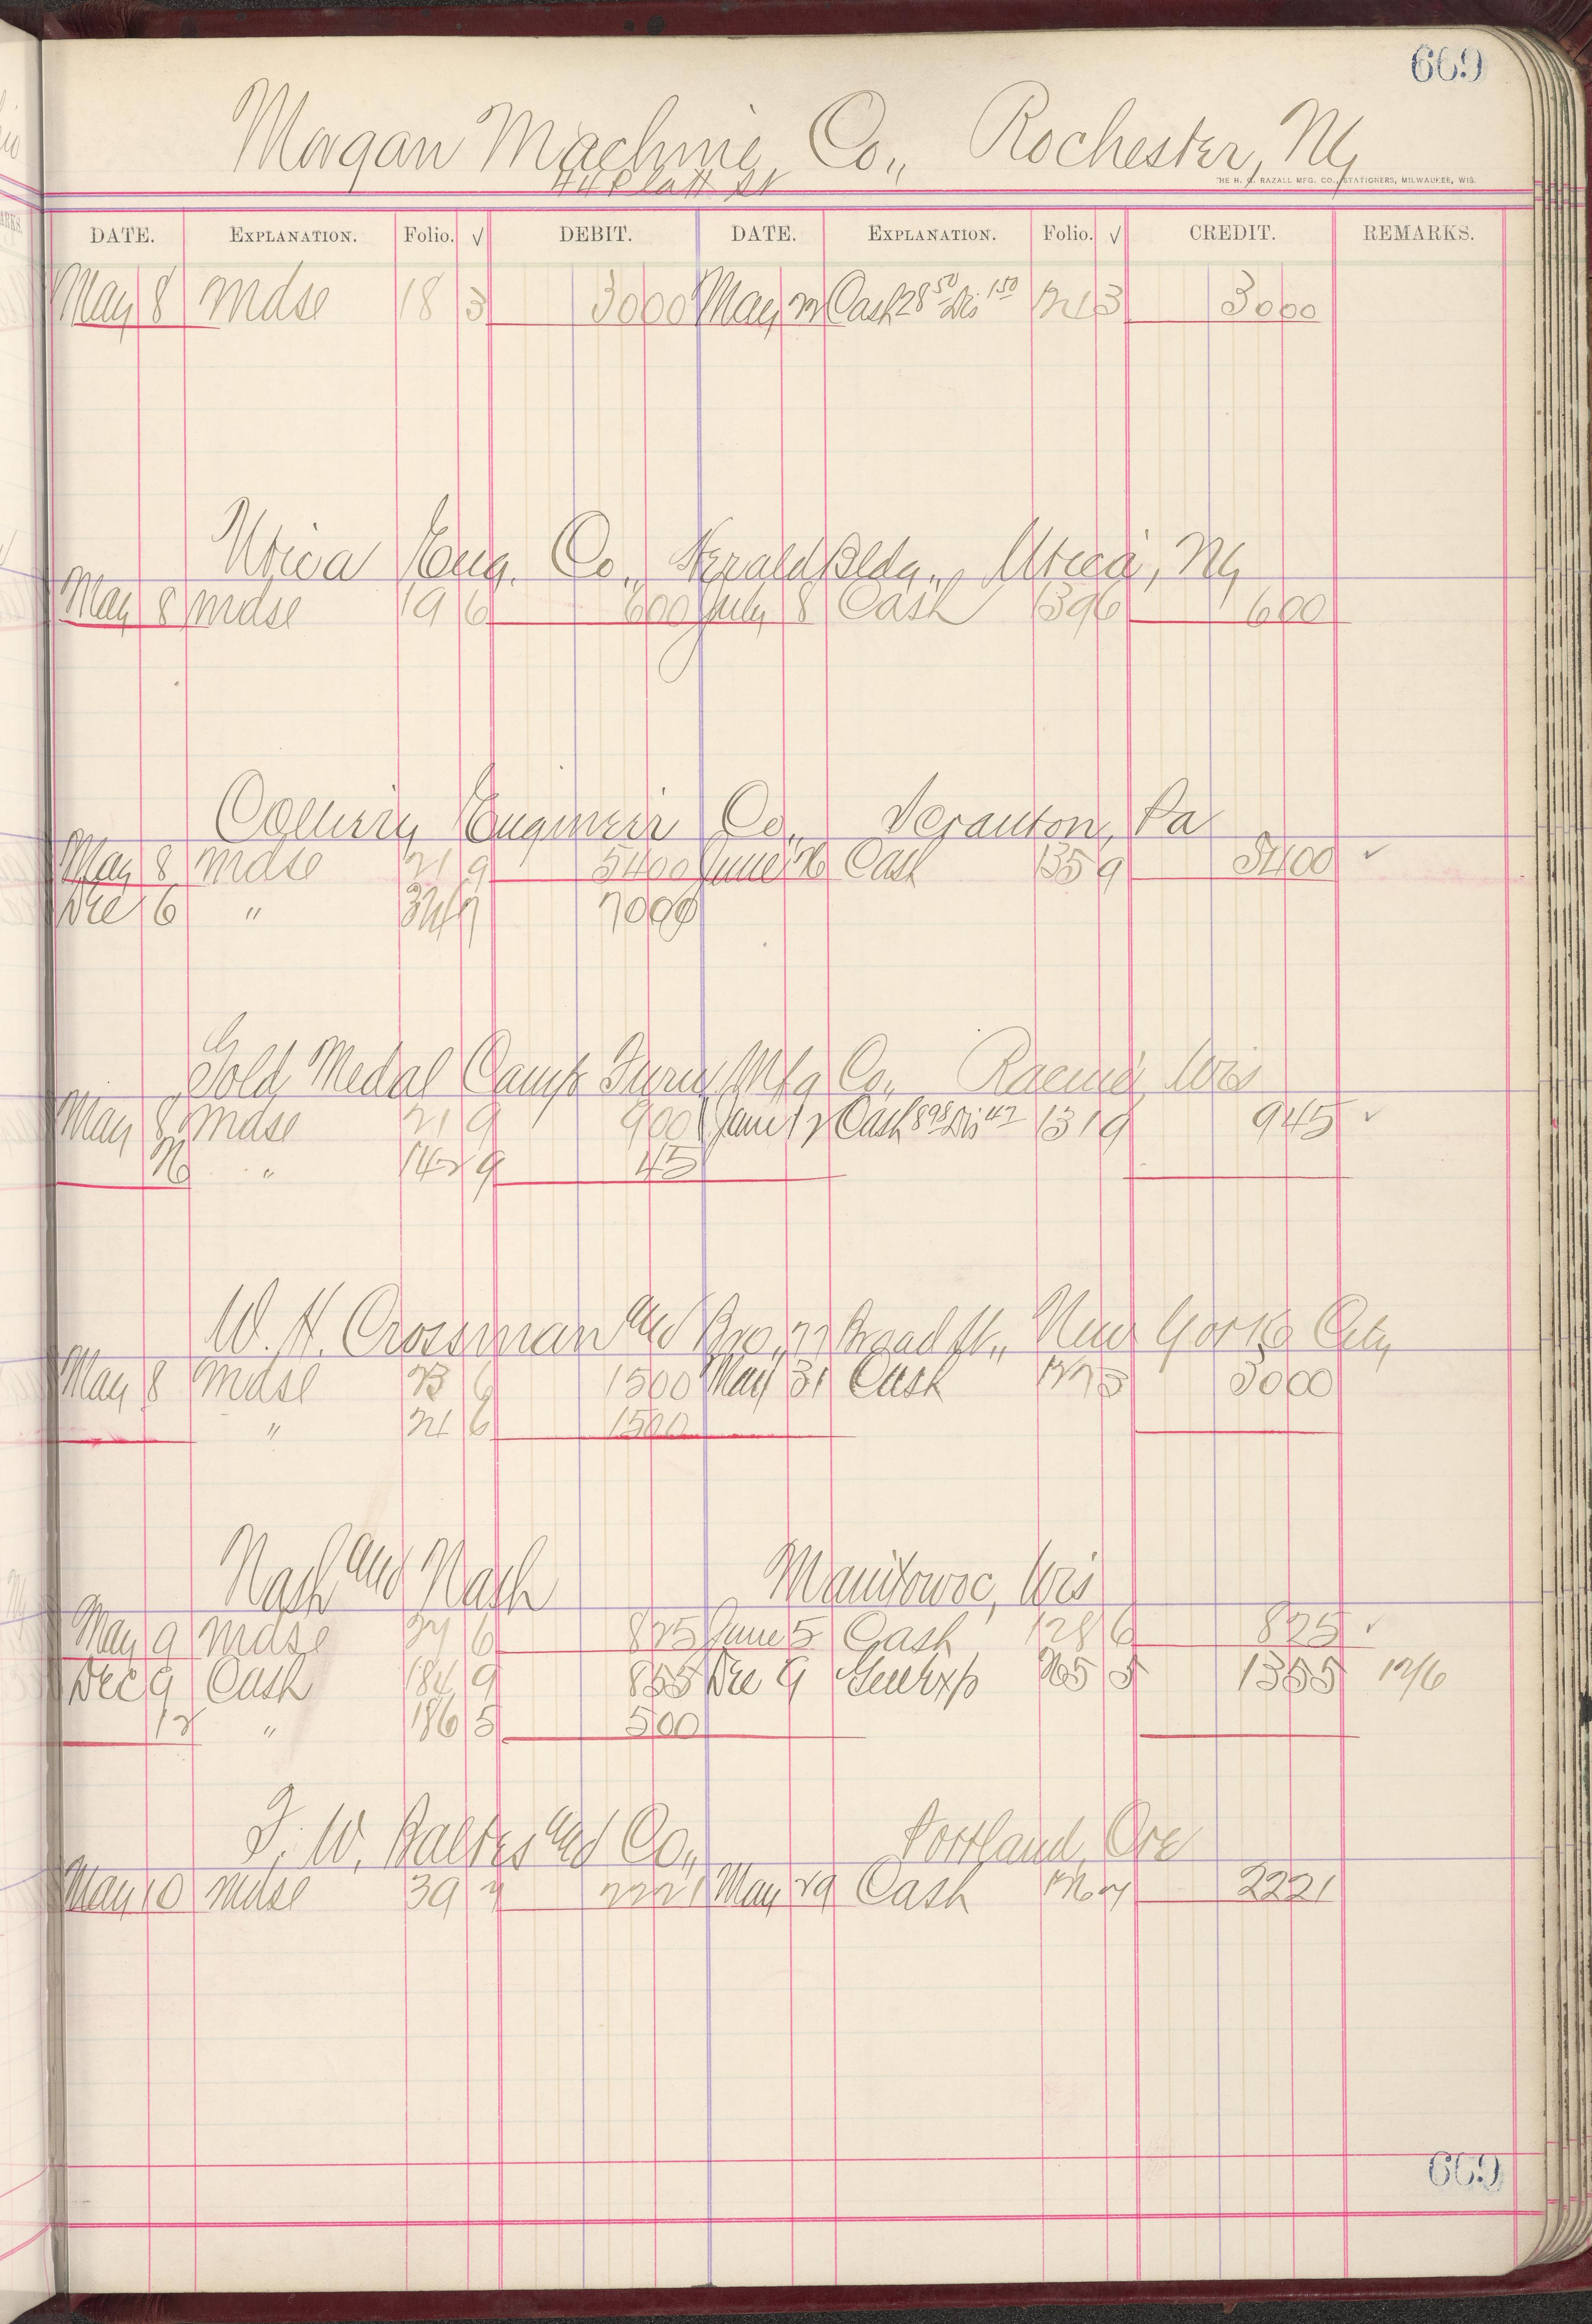 669
Morgan Machine Co., Rochester, Ny
44 Platt St
THE H. G. RAZALL MFG. CO., STATIONERS, MILWAUKEE, WIS.
DATE. EXPLANATION. Folio. √ DEBIT. DATE. EXPLANATION. Folio. √ CREDIT. REMARKS.
May 8 Mdse 18 3 3000 May Cash 28 50 Dis 1 50 3 3000
Utica Eng. Co., Herald Bldg., Utica, Ny
May 8 Mdse 19 6 600 July 8 Cash 139 6 600
Colliery Engineer Co., Scranton, Pa
May 8 Mdse 21 9 5400 June 26 Cash 135 9 5400 ✓
Dec 6 " 7000
Gold Medal Camp Furn Mfg Co., Racine, Wis
May 8 Mdse 21 9 900 June 12 Cash 8 98 Dis 47 131 9 945 ✓
26 " 142 9 45
W. H. Crossman and Bro, 77 Broad St., New York City
May 8 Mdse 23 6 1500 May 31 Cash 3000
" 24 6 1500
Nash and Nash Manitowoc, Wis
May 9 Mdse 27 6 825 June 5 Cash 128 6 825 ✓
Dec 9 Cash 184 9 855 Dec 9 Genl Exp 265 5 1355 12/6
12 " 186 5 500
F. W. Baltes and Co., Portland, Ore
May 10 Mdse 39 7 2221 May 29 Cash 126 7 2221
669